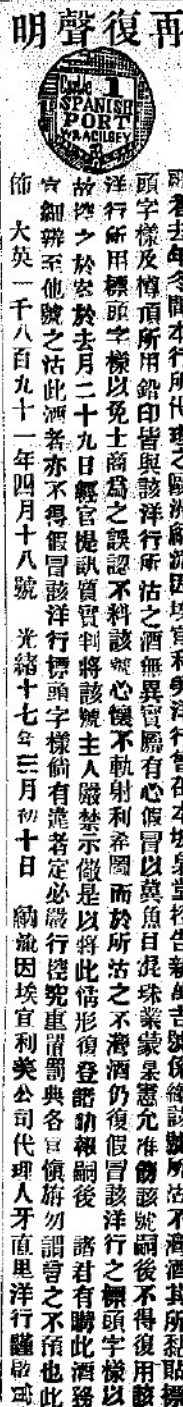 再復聲明
Castle 1
SPANISH
PORT
W. & A. GILBEY
啟者去年冬間本行所代理之歐洲縞流因埃宣利美洋行曾在本埠臬堂控告新萬吉號係緣該號所沽不濫酒其所黏貼標
頭字樣及樽頂所用鉛印皆與該洋行所沽之酒無異實屬有心假冒以冀魚目混珠業蒙臬憲允准飭該號嗣後不得復用該
洋行所用標頭字樣以免士商為之誤認不料該號心懷不軌射利希圖而於所沽之不濫酒仍復假冒該洋行之標頭字樣以
故控之於案於去月二十九日經官提訊質實判將該號主人嚴禁示儆是以將此情形復登諸訪報嗣後 諸君有購此酒務
宜細辨至他號之沽此酒者亦不得假冒該洋行標頭字樣倘有違者定必嚴行控究重罰典各宜慎旃勿謂言之不預也此
佈 大英一千八百九十一年四月十八號 光緒十七年三月初十日 縞流因埃宣利美公司代理人牙直里洋行謹啟